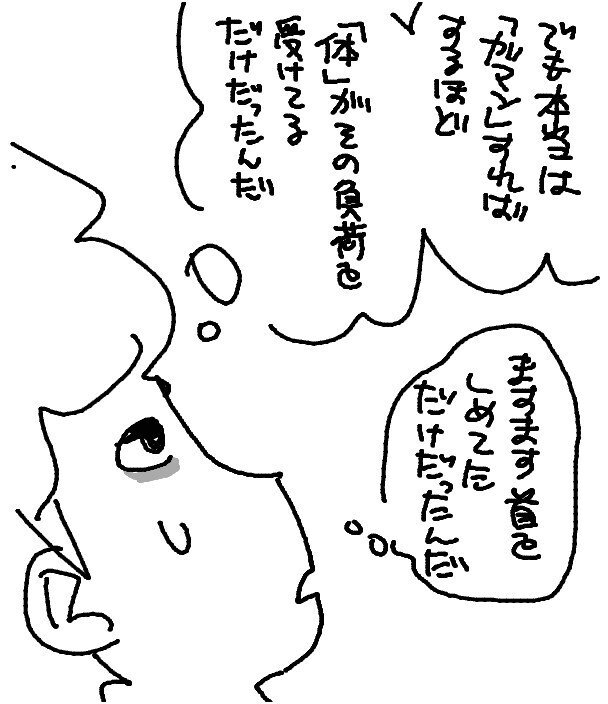 でも本当は
「ガマン」すれば
するほど
「体」がその負荷を
受けてる
だけだったんだ
ますます首を
しめてた
だけだったんだ